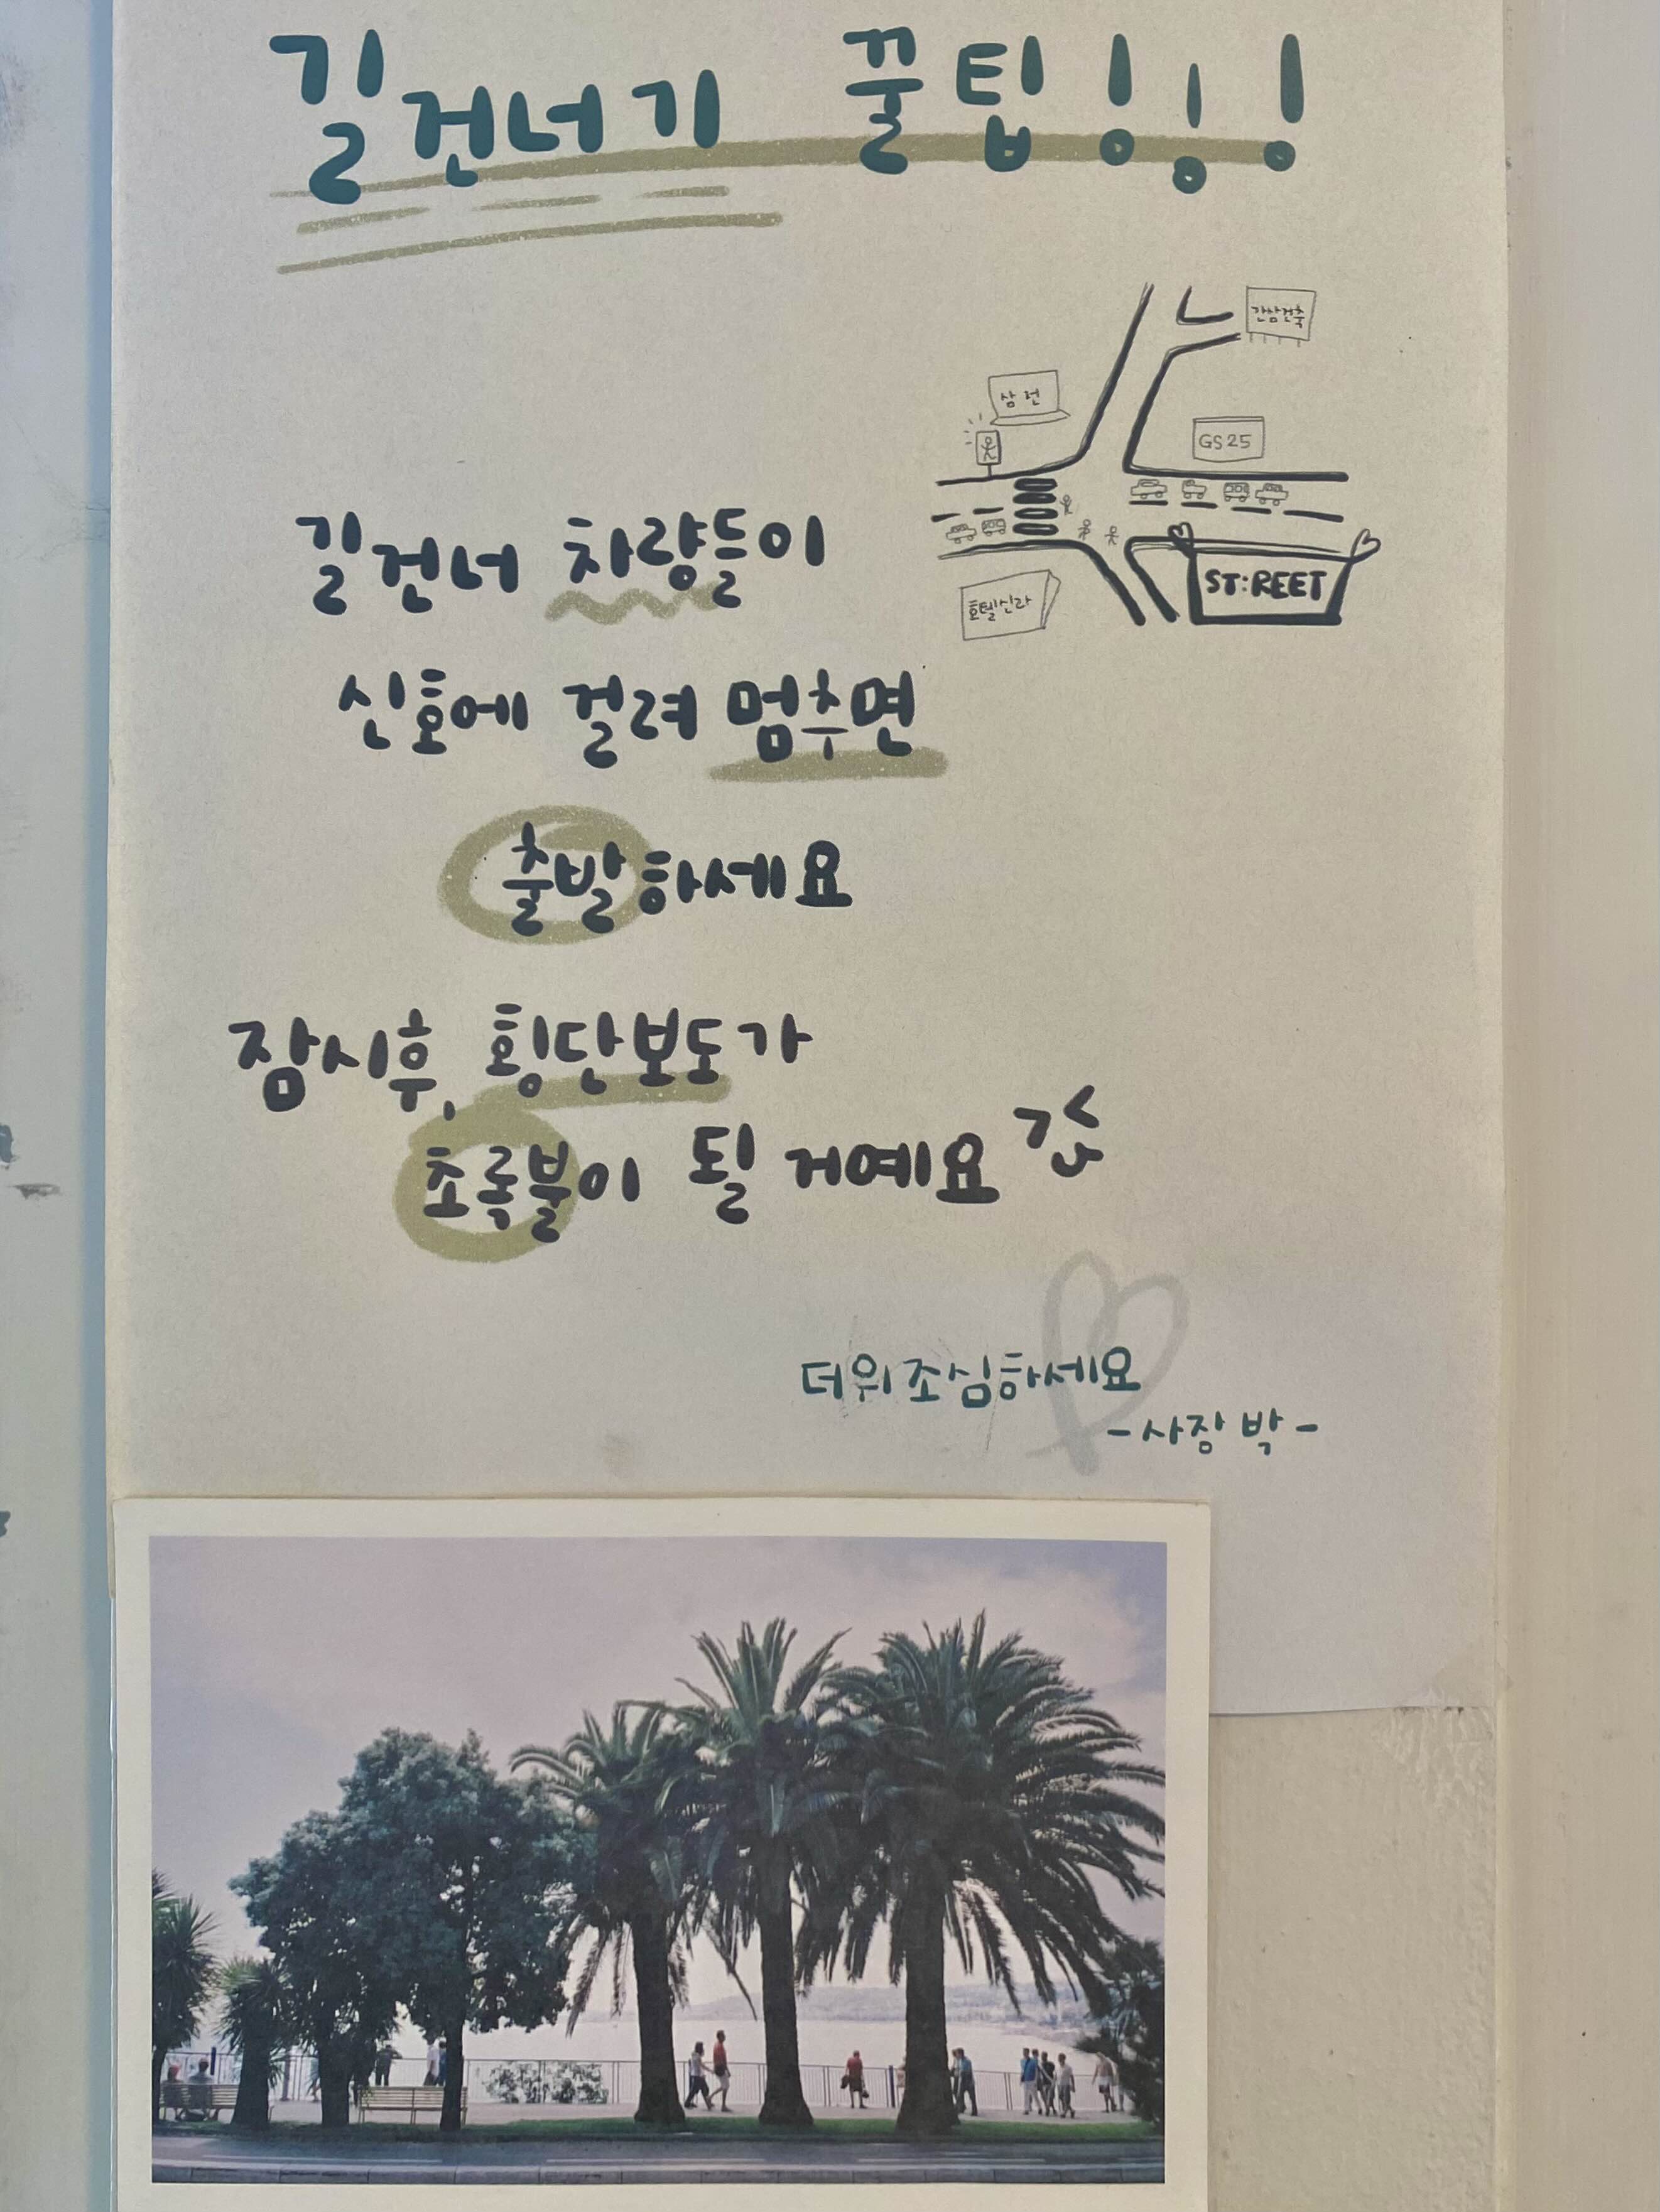 길건너기 꿀팁!!!
간삼건축
삼전
GS25
호텔신라
ST:REET
길건너 차량들이
신호에 걸려 멈추면
출발하세요
잠시후, 횡단보도가
초록불이 될 거예요
더위조심하세요
-사장 박-